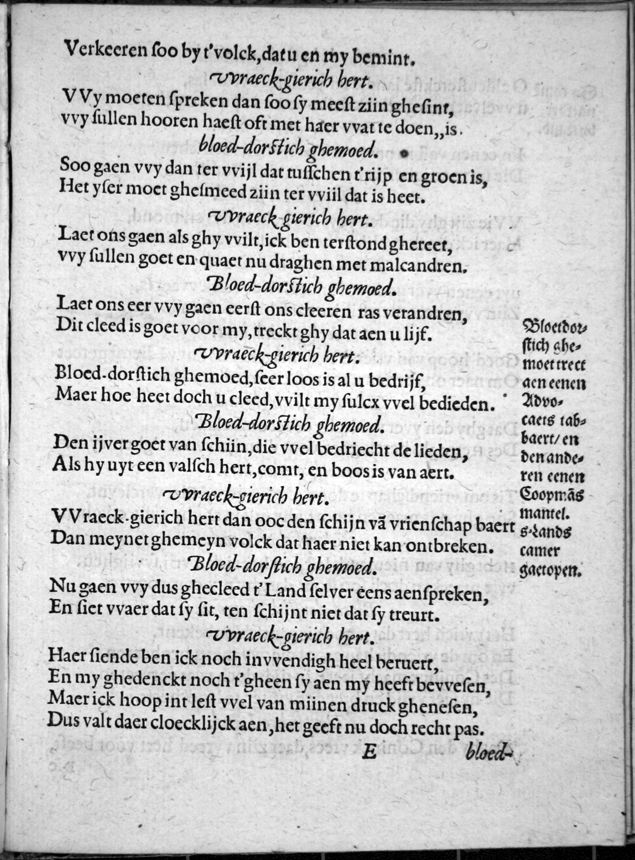 Verkeeren ſoo by t'volck, dat u en my bemint.
vvraeck-gierich hert.
VVy moeten ſpreken dan ſoo ſy meeſt ziin gheſint,
vvy ſullen hooren haeſt oft met haer vvat te doen,,is.
bloed-dorſtich ghemoed.
Soo gaen vvy dan ter vvijl dat tuſſchen t'rijp en groen is,
Het yſer moet gheſmeed ziin ter vviil dat is heet.
vvraeck gierich hert.
Laet ons gaen als ghy vvilt, ick ben terſtond ghereet,
vvy ſullen goet en quaet nu draghen met malcandren.
Bloed-dorſtich ghemoed.
Laet ons eer vvy gaen eerſt ons cleeren ras verandren,
Dit cleed is goet voor my, treckt ghy dat aen u lijf.
vvraeck-gierich hert.
Bloed-dorſtich ghemoed, ſeer loos is al u bedrijf,
Maer hoe heet doch u cleed, vvilt my ſulcx vvel bedieden.
Bloed-dorſtich ghemoed.
Den ijver goet van ſchiin, die vvel bedriecht de lieden,
Als hy uyt een valſch hert, comt, en boos is van aert.
vvraeck-gierich hert.
VVraeck-gierich hert dan ooc den ſchijn vā vrienſchap baert
Dan meynet ghemeyn volck dat haer niet kan ontbreken.
Bloed-dorſtich ghemoed.
Nu gaen vvy dus ghecleed t'Land ſelver eens aenſpreken,
En ſiet vvaer dat ſy ſit, ten ſchijnt niet dat ſy treurt.
vvraeck-gierich hert.
Haer ſiende ben ick noch invvendigh heel beruert,
En my ghedenckt noch t'gheen ſy aen my heeft bevveſen,
Maer ick hoop int leſt vvel van miinen druck gheneſen,
Dus valt daer cloecklijck aen, het geeft nu doch recht pas.
E bloed-
Bloetdor-
ſtich ghe-
moet trect
aen eenen
Advo-
caets tab-
baert/ en
den ande-
ren eenen
Coopmās
mantel.
s-Lands
camer
gaet open.